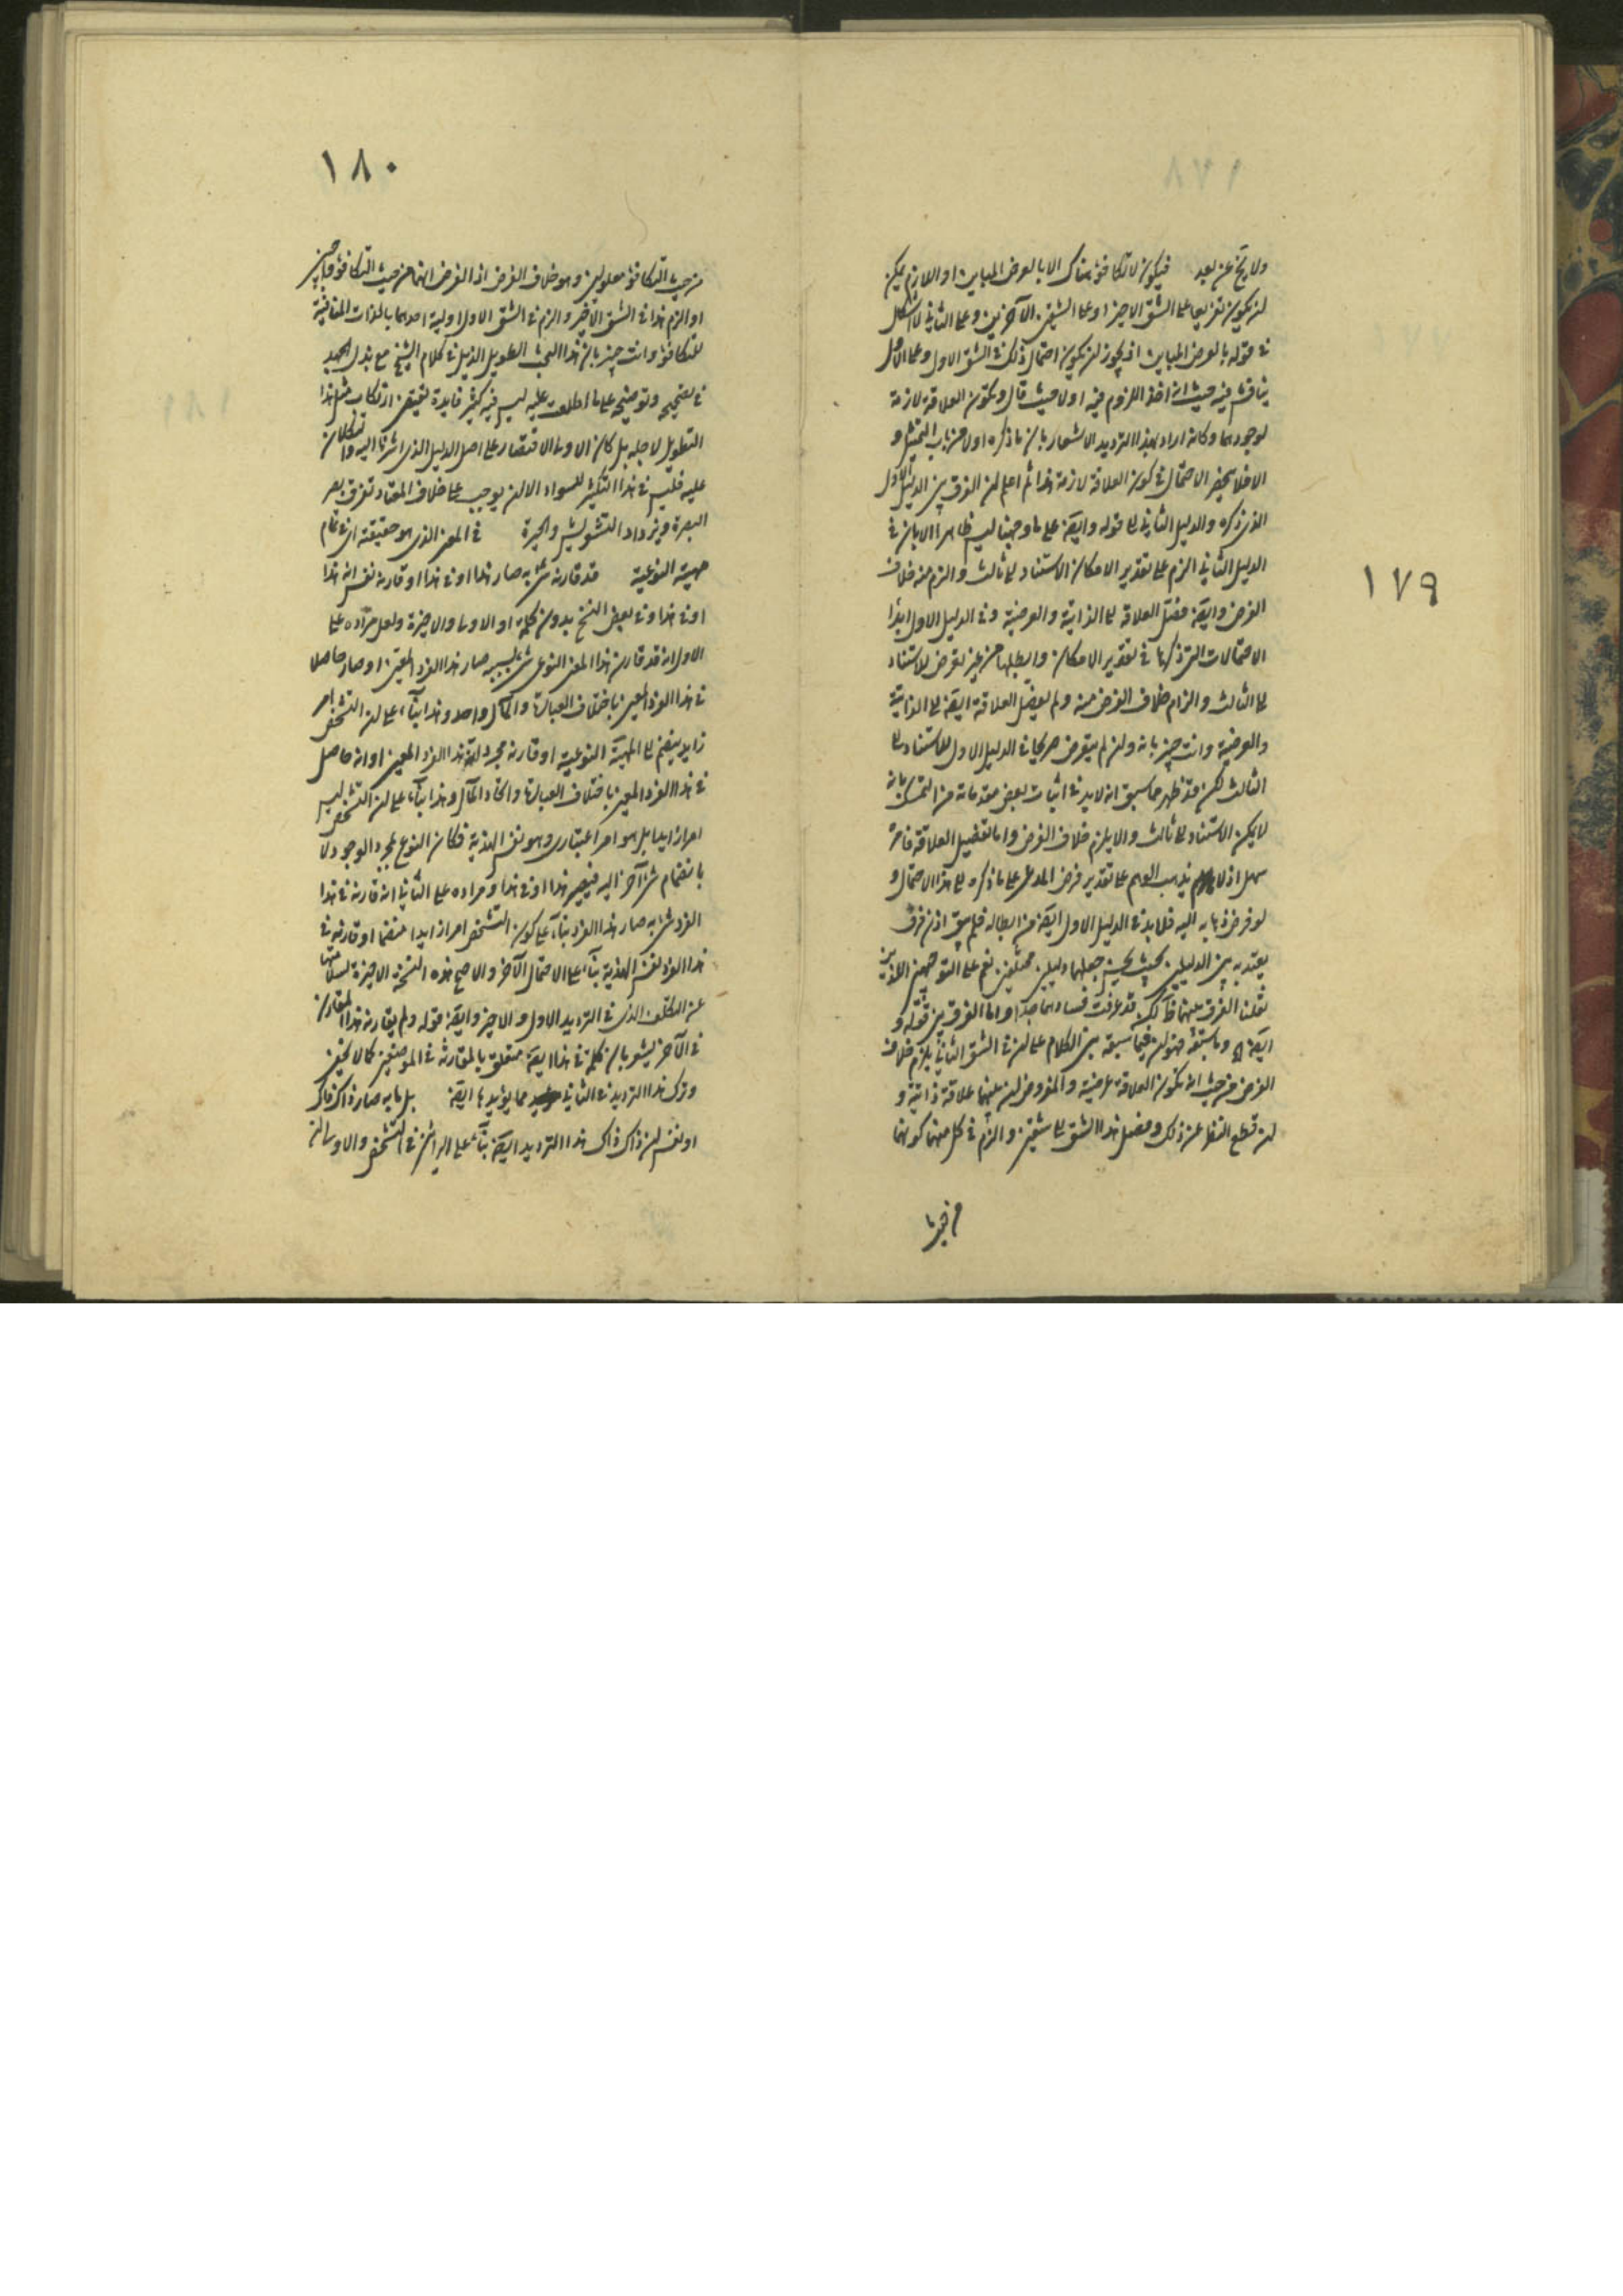 ١٧٩
ولا يخ عن بعد فيكون لا تكافؤ هناك الا بالعرض المباين او اللازم يمكن
ان يكون تفريعا على الشق الاخير او على الشقين الآخرين وعلى الثاني لا اشكال
في قوله بالعرض المباين اذ يجوز ان يكون احتمال ذلك في الشق الاول وعلى الاول
يناقش فيه حيث انه اخذ اللزوم فيه اولا حيث قال وتكون العلاقة لازمة
لوجودهما وكانه اراد بهذا الترديد الاشعار بان ما ذكره اولا من باب التمثيل و
الا فلا ينحصر الاحتمال في كون العلاقة لازمة هذا ثم اعلم ان الفرق بين الدليل الاول
الذي ذكره والدليل الثاني في قوله وايضا على ما وجهنا ليس ظاهرا الا بان في
الدليل الثاني الزم على تقدير الامكان الاستناد الى ثالث والزم منه خلاف
الفرض وايضا فصل العلاقة الى الذاتية والعرضية وفي الدليل الاول ابدا
الاحتمالات التي ذكرها في تقدير الامكان وابطلها من غير تعرض للاستناد
الى الثالث والزام خلاف الفرض منه ولم يفصل العلاقة ايضا الى الذاتية
والعرضية وانت خبير بانه وان لم يتعرض صريحا في الدليل الاول للاستناد الى
الثالث لكن قد ظهر مما سبق انه لا بد في اثبات بعض مقدماته من التمسك بانه
لا يمكن الاستناد الى ثالث والا يلزم خلاف الفرض واما تفصيل العلاقة فامره
سهل اذ لا يذهب الوهم على تقدير فرض المدعى على ما ذكره الى هذا الاحتمال و
لو فرض ذهابه اليه فلا بد في الدليل الاول ايضا من ابطاله فلم يبق اذن فرق
يعتد به بين الدليلين بحيث يحسن جعلهما دليلين مختلفين نعم على التوجيهين اللذين
نقلنا الفرق بينهما ظ لكن قد عرفت فسادهما جدا واما الفرق بين قوله و
ايضا وما سبقه فهو ان فيما سبقه بنى الكلام على ان في الشق الثاني يلزم خلاف
الفرض من حيث انه تكون العلاقة عرضية والمفروض ان بينهما علاقة ذاتية و
ان قطع النظر عن ذلك وفصل هذا الشق الى شقين والزم في كل منهما كونهما
١٨٠
من حيث التكافؤ معلولين وهو خلاف الفرض اذ الفرض انهما من حيث التكافؤ واجبين
او الزم هذا في الشق الاخير والزم في الشق الاول اولية احدهما بالذات المنافية
للتكافؤ وانت خبير بان هذا البحث الطويل الذيل في كلام الشيخ مع بذل الجهد
في تصحيحه وتوضيحه على ما اطلعت عليه ليس فيه كثير فايدة تقتضي ارتكاب مثل هذا
التطويل لاجله بل كان الاولى الاقتصار على اصل الدليل الذي اشرنا اليه والتكلان
عليه فليس في هذا التكثير للسواد الا ان يوجب على خلاف المعتاد تفرق بصر
البصيرة ويزداد التشويش والحيرة في المعنى الذي هو حقيقته اي تمام
مهيته النوعية قد قارنه شي به صار هذا او في هذا او قارنه نفس انه هذا
او في هذا وفي بعض النسخ بدون كلمة او الاولى والاخيرة ولعل مراده على
الاول انه قد قارن هذا المعنى النوعي شي بسببه صار هذا الفرد المعين او صار حاصلا
في هذا الفرد المعين باختلاف العبارة والمآل واحد وهذا بناء على ان التشخص امر
زايد ينضم الى المهية النوعية او قارنه مجرد انه هذا الفرد المعين او انه حاصل
في هذا الفرد المعين باختلاف العبارة واتحاد المآل وهذا بناء على ان التشخص ليس
امرا زايدا بل هو امر اعتباري وهو نفس الهذية فكان النوع بمجرد الوجود لا
بانضمام شي آخر اليه فيصير هذا او في هذا ومراده على الثاني انه قارنه في هذا
الفرد شي به صار هذا الفرد بناء على كون التشخص امرا زايدا منضما او قارنه في
هذا الفرد نفس الهذية بناء على الاحتمال الآخر والاصح هذه النسخة الاخيرة لسلامتها
عن التكلف الذي في الترديد الاول والاخير وايضا قوله ولم يقارنه هذا المقارن
في الآخر يشعر بان كلمة في هذا ايضا متعلق بالمقارنة في الموضعين كما لا يخفى
وترك هذا الترديد في الثاني مما يؤيدها ايضا بل ما به صار ذاك ذاك
او نفس ان ذاك ذاك هذا الترديد ايضا بناء على الرائين في التشخص والاولى ان